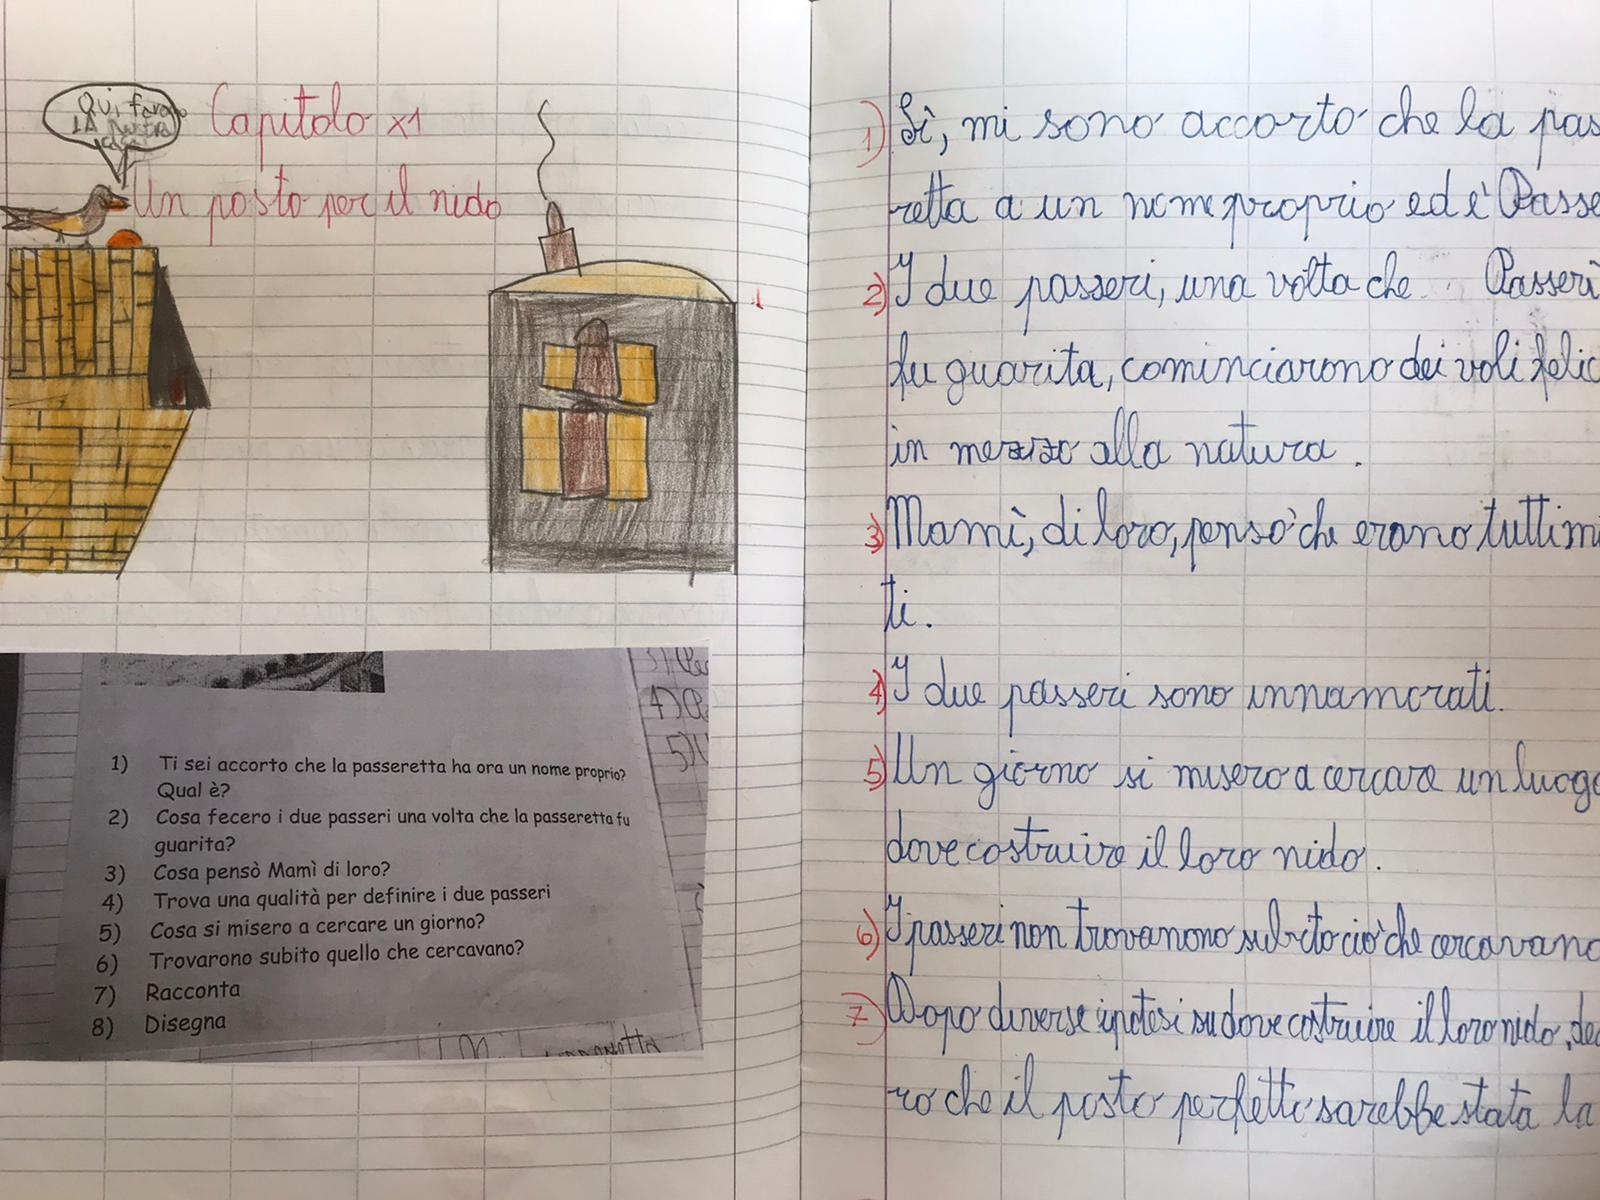 Qui faremo
LA nostra
Capitolo x1
Un posto per il nido
1) Ti sei accorto che la passeretta ha ora un nome proprio?
Qual è?
2) Cosa fecero i due passeri una volta che la passeretta fu
guarita?
3) Cosa pensò Mamì di loro?
4) Trova una qualità per definire i due passeri
5) Cosa si misero a cercare un giorno?
6) Trovarono subito quello che cercavano?
7) Racconta
8) Disegna
3)
4)
5)
1) Sì, mi sono accorto che la pas
retta a un nome proprio ed è Passe
2) I due passeri, una volta che Passerì
fu guarita, cominciarono dei voli felic
in mezzo alla natura.
3) Mamì, di loro, pensò che erano tutti m
ti.
4) I due passeri sono innamorati.
5) Un giorno si misero a cercare un luogo
dove costruire il loro nido.
6) I passeri non trovanono subito ciò che cercavano
7) Dopo diverse ipotesi su dove costruire il loro nido, dec
ro che il posto perfetto sarebbe stata la